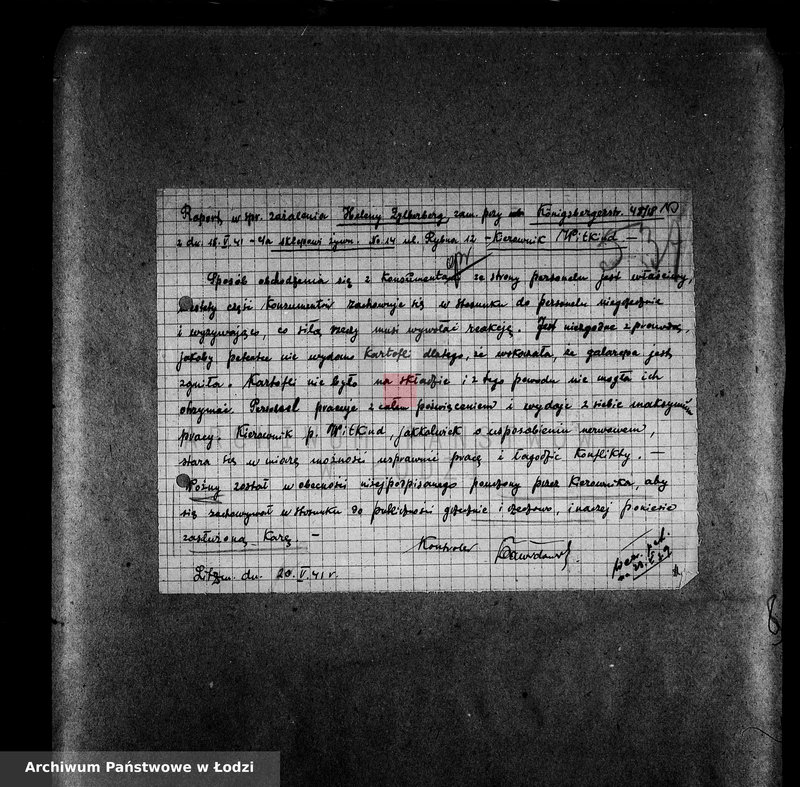 Raport w spr. zażalenia Heleny Zylberberg, zam. przy Königsbergerstr. 48/18
z dn. 18.V.41 - na sklepowi żywn. No. 14 ul. Rybna 12 - Kierownik Witkind -
Sposób obchodzenia się z konsumentami ze strony personelu jest właściwy,
niestety część konsumentów zachowuje się w stosunku do personelu niegrzecznie
i wyzywająco, co siłą rzeczy musi wywołać reakcję. Jest niezgodne z prawdą,
jakoby petentce nie wydano kartofli dlatego, że wskazała, że galarepa jest
zgniła. Kartofli nie było na składzie i z tego powodu nie mogła ich
otrzymać. Personel pracuje z całem poświęceniem i wydaje z siebie maksymum
pracy. Kierownik p. Witkind, jakkolwiek o usposobieniu nerwowem,
stara się w miarę możności usprawnić pracę i łagodzić konflikty. -
Woźny został w obecności niżej podpisanego pouczony przez kierownika, aby
się zachowywał w stosunku do publiczności grzecznie i rzeczowo, inaczej poniesie
zasłużoną karę. -
Kontroler
Litzm. dn. 20.V.41 r.
8
Archiwum Państwowe w Łodzi